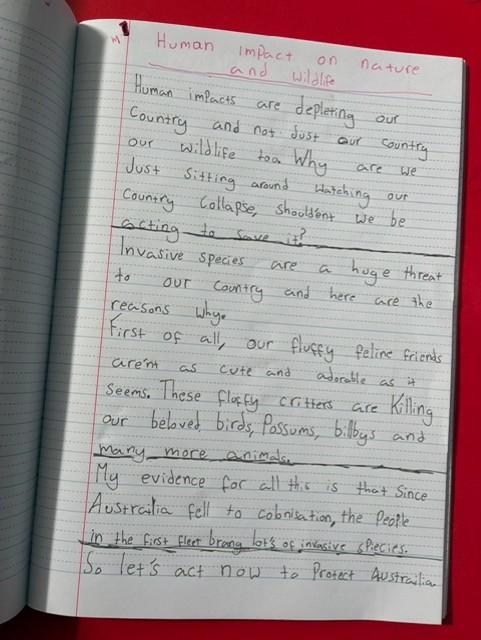 Human impact on nature
and wildlife
Human impacts are depleting our
Country and not Just our country
our wildlife too. Why are we
Just sitting around watching our
Country Collapse, should'ent we be
acting to save it?
Invasive species are a huge threat
to our country and here are the
reasons why.
First of all, our fluffy feline friends
are'nt as cute and adorable as it
seems. These floffy critters are Killing
our beloved birds, Possums, bilbys and
many more animals.
My evidence for all this is that Since
Austrailia fell to colonisation, the People
in the first fleet brang lot's of invasive species.
So let's act now to Protect Austrailia